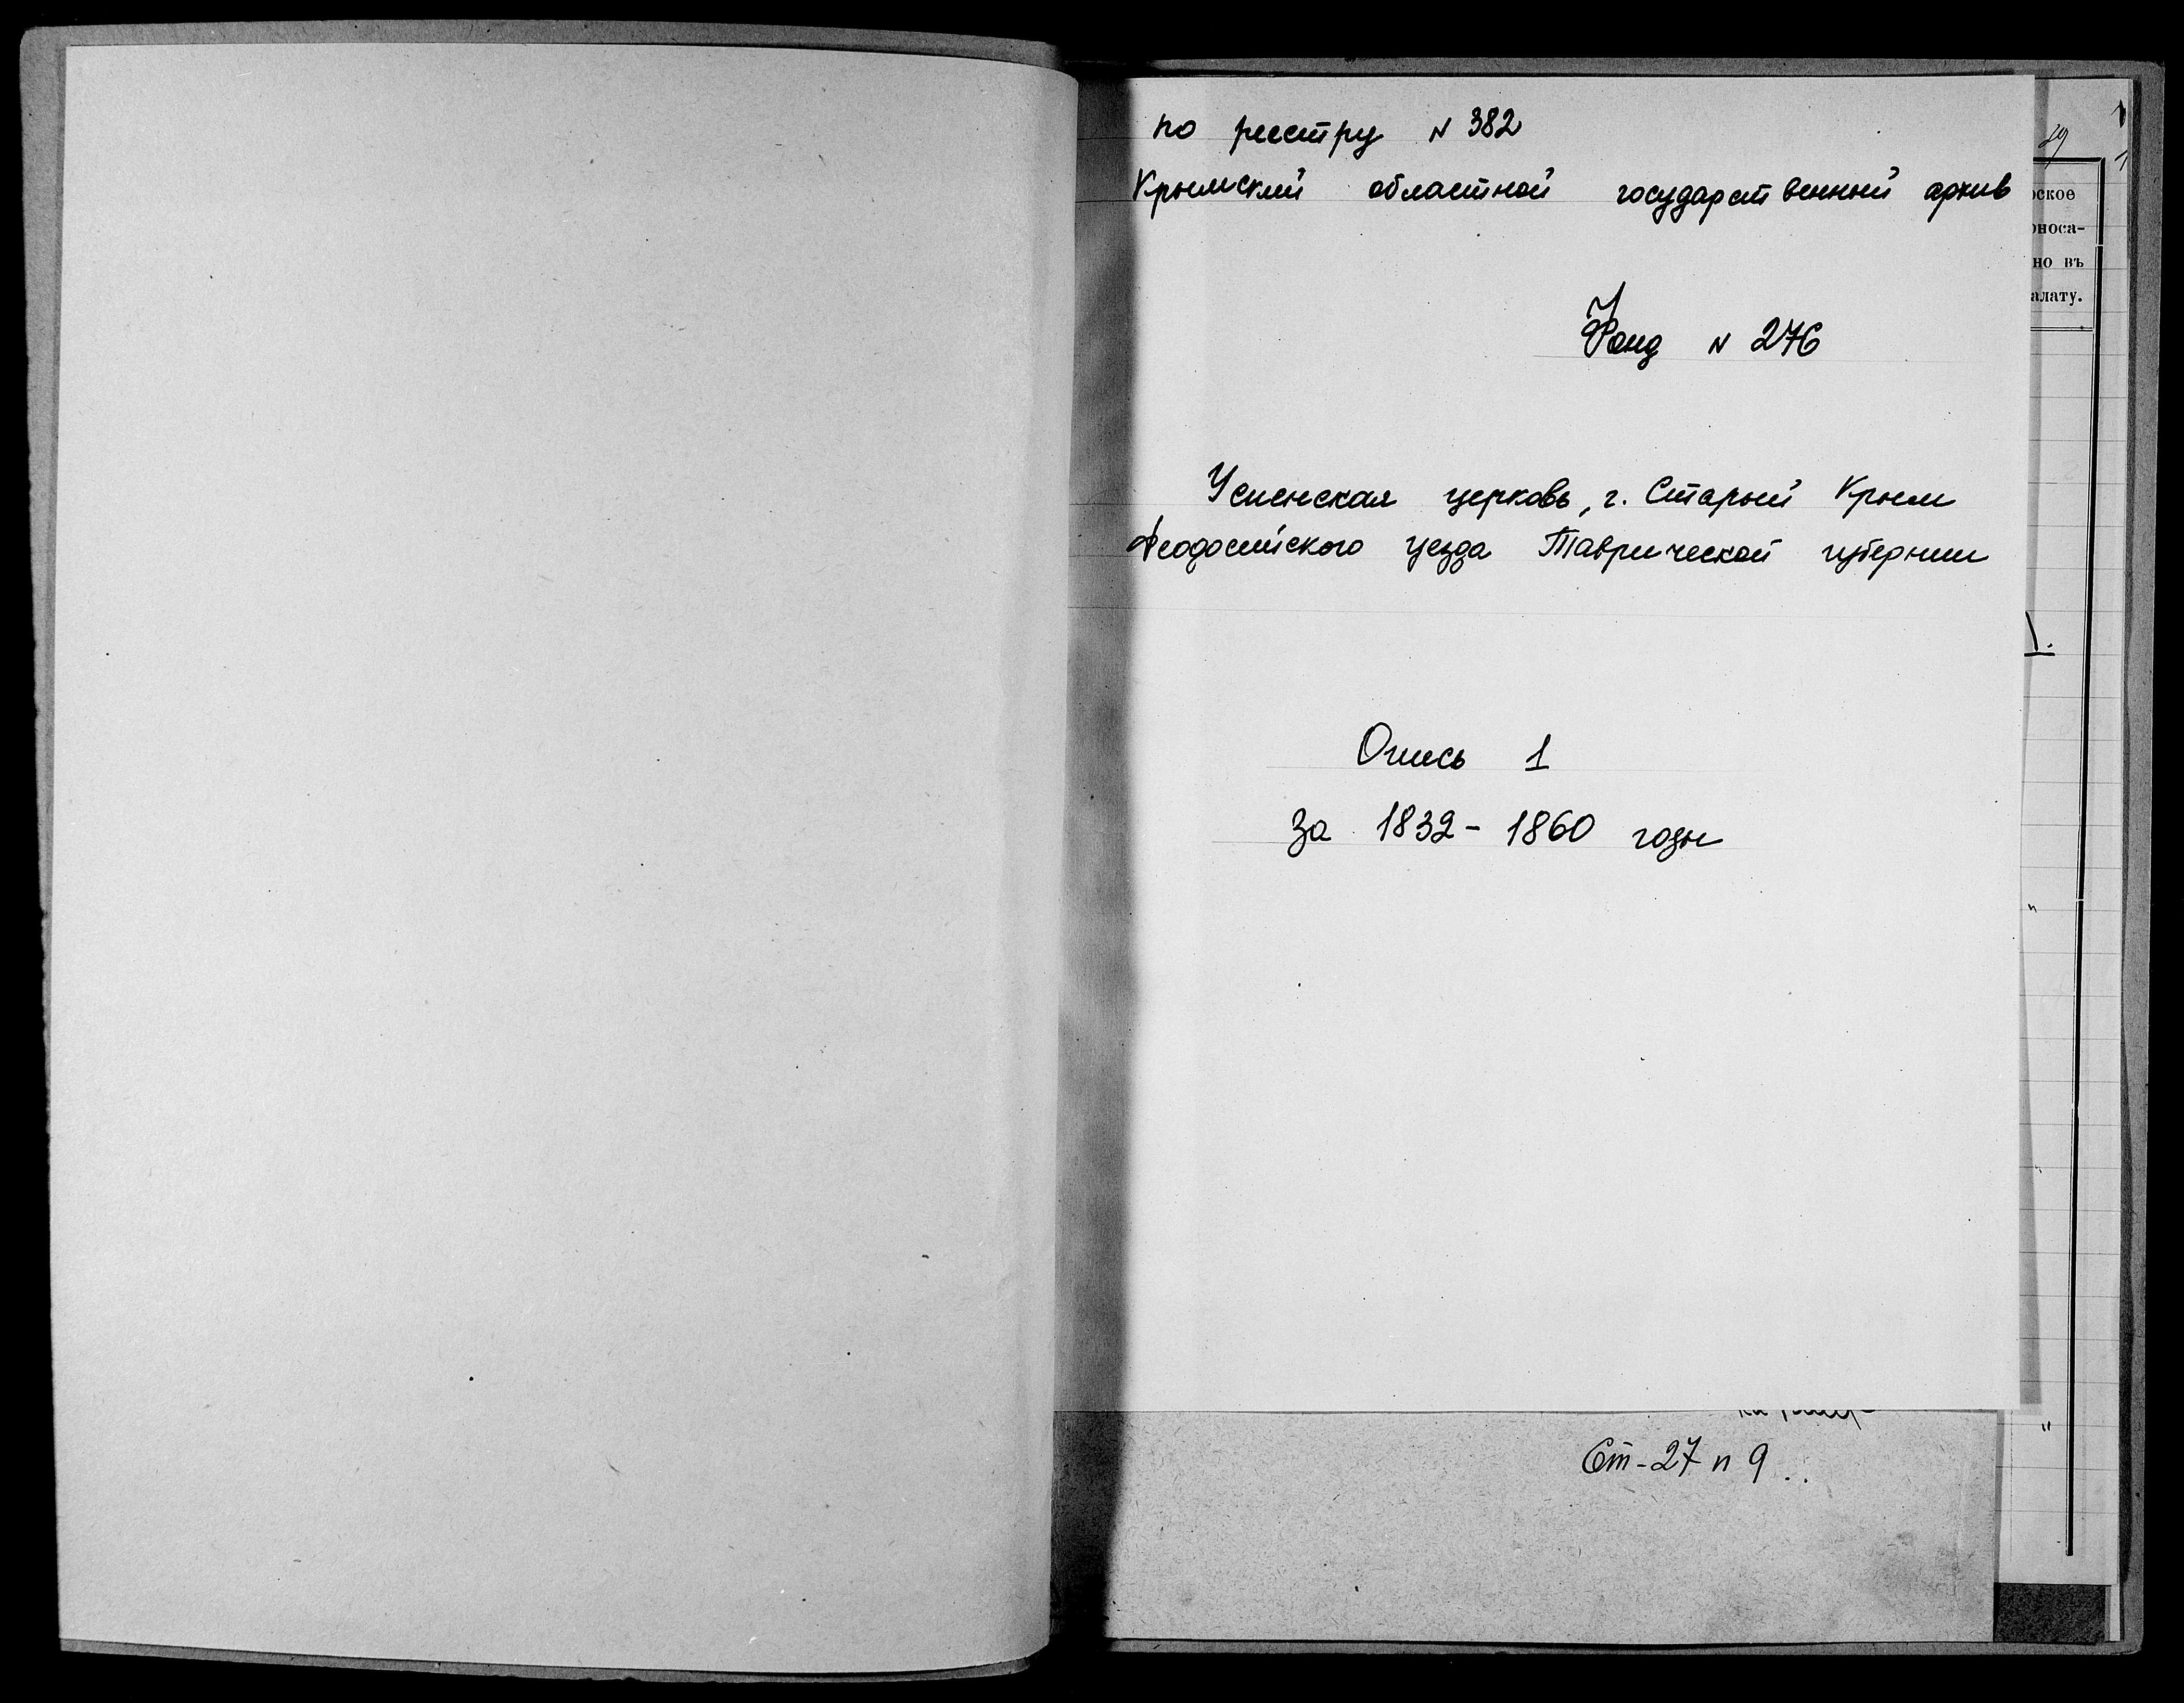 по реестру N 382
Крымский областной государственный архив
Фонд N 276
Успенская церковь, г. Старый Крым
Феодосийского уезда Таврической губернии
Опись 1
за 1832 - 1860 годы
Ст-27 п 9
29
ское
оноса-
но въ
алату.